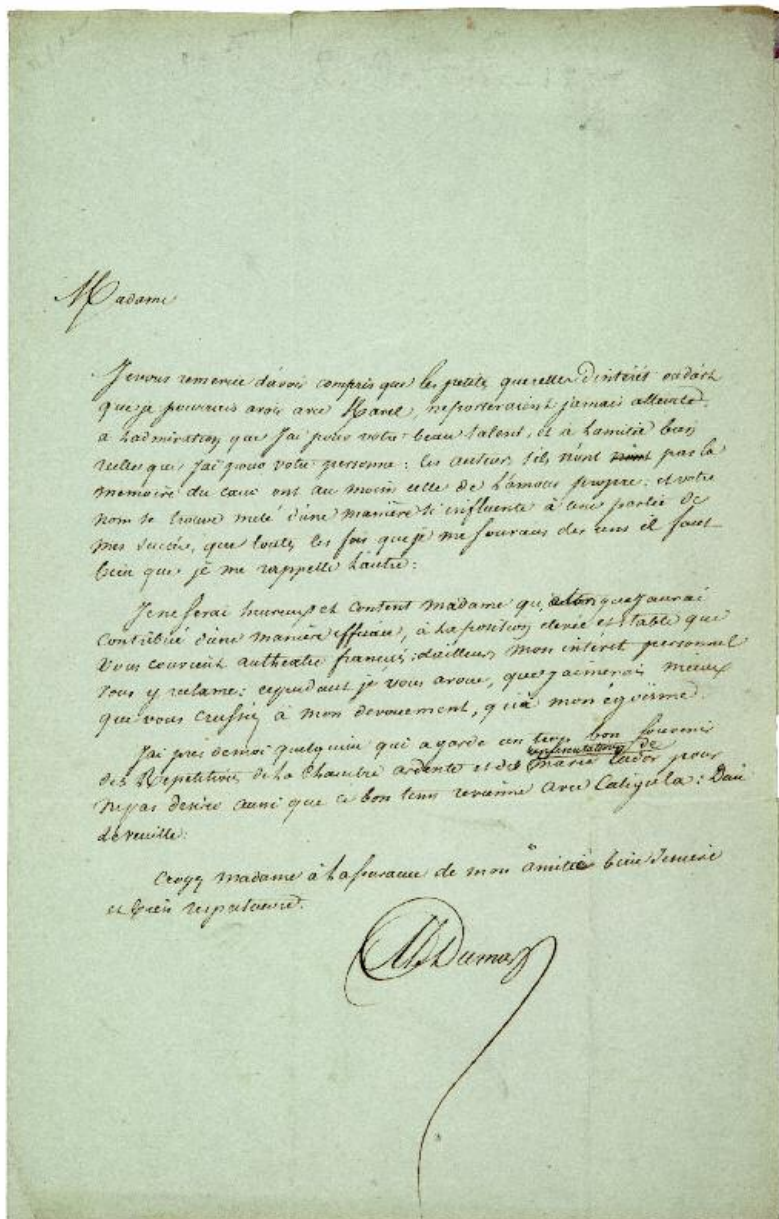 Madame
Je vous remercie d'avoir compris que les petites querelles d'intérêt
que je pourrais avoir avec Harel, ne porteraient jamais atteinte,
a l'admiration que j'ai pour votre beau talent, et a l'amitié bien
réelle que j'ai pour votre personne : les auteurs s'ils n'ont pas la
mémoire du cœur ont au moin celle de l'amour propre : et votre
nom se trouve mélé d'une manière si influente à une partie de
mes succès, que toutes les fois que je me souviens des uns il faut
bien que je me rappelle l'autre :
Je ne serai heureux et content madame que j'aurai
contribué d'une manière efficace, à la position élevée et stable que
vous convient au théatre français : d'ailleurs mon intérêt personnel
vous y réclame : cependant je vous avoue, que j'aimerais mieux
que vous crussiez à mon dévouement, qu'à mon égoïsme.
J'ai près de moi quelqu'un qui a gardé un trop bon souvenir
des Répétitions de la Chambre ardente et des représentations de Marie Tudor pour
ne pas désirer aussi que ce bon tems revienne avec Caligula : Dieu
le veuille.
Croyez madame à l'assurance de mon amitié bien sincère
et bien respectueuse.
Al Dumas